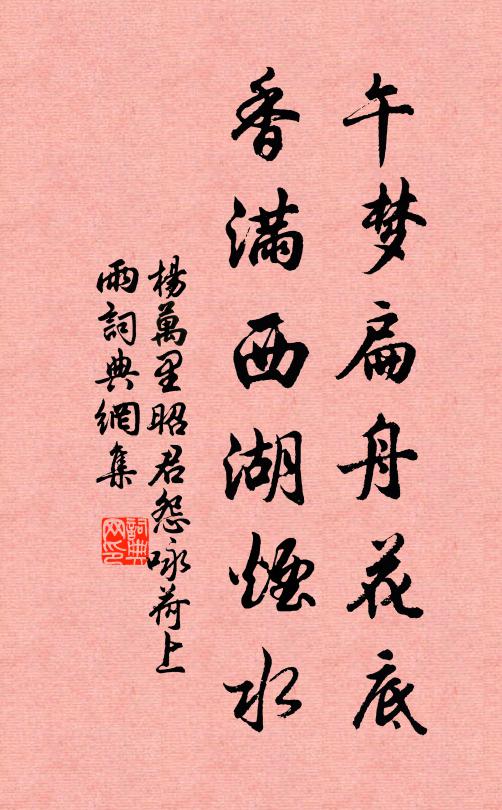 午梦扁舟花底
香满西湖煙水
楊萬里昭君怨咏荷上
雨詞典網集
詞典網印